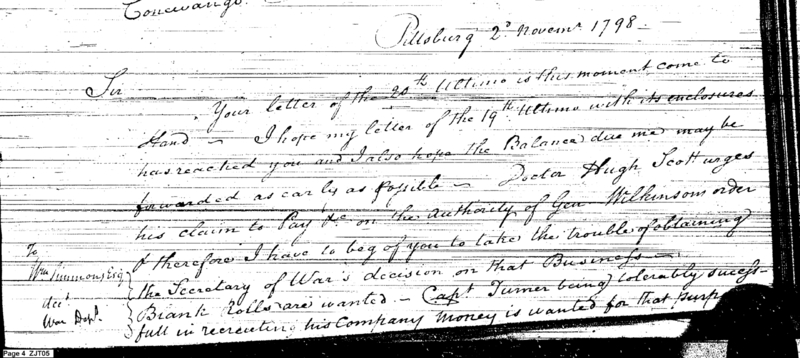 Conewango.
Pittsburg 2d Novemr. 1798 -
Sir
Your letter of the 20th Ultimo is this moment come to
Hand - I hope my letter of the 19th Ultimo with its enclosures
has reached you and I also hope the Balance due me may be
forwarded as early as Possible - Doctor Hugh Scott urges
his claim to Pay &c on the authority of Genl Wilkinsons order
& therefore I have to beg of you to take the trouble of obtaining
the Secretary of War's decision on that Business -
Blank Rolls are wanted - Capt. Turner being tolerably sucess-
full in recruiting his Company Money is wanted for that
To
Wm Simmons Esq
Acct
War Dept.
Page 4 ZJT05